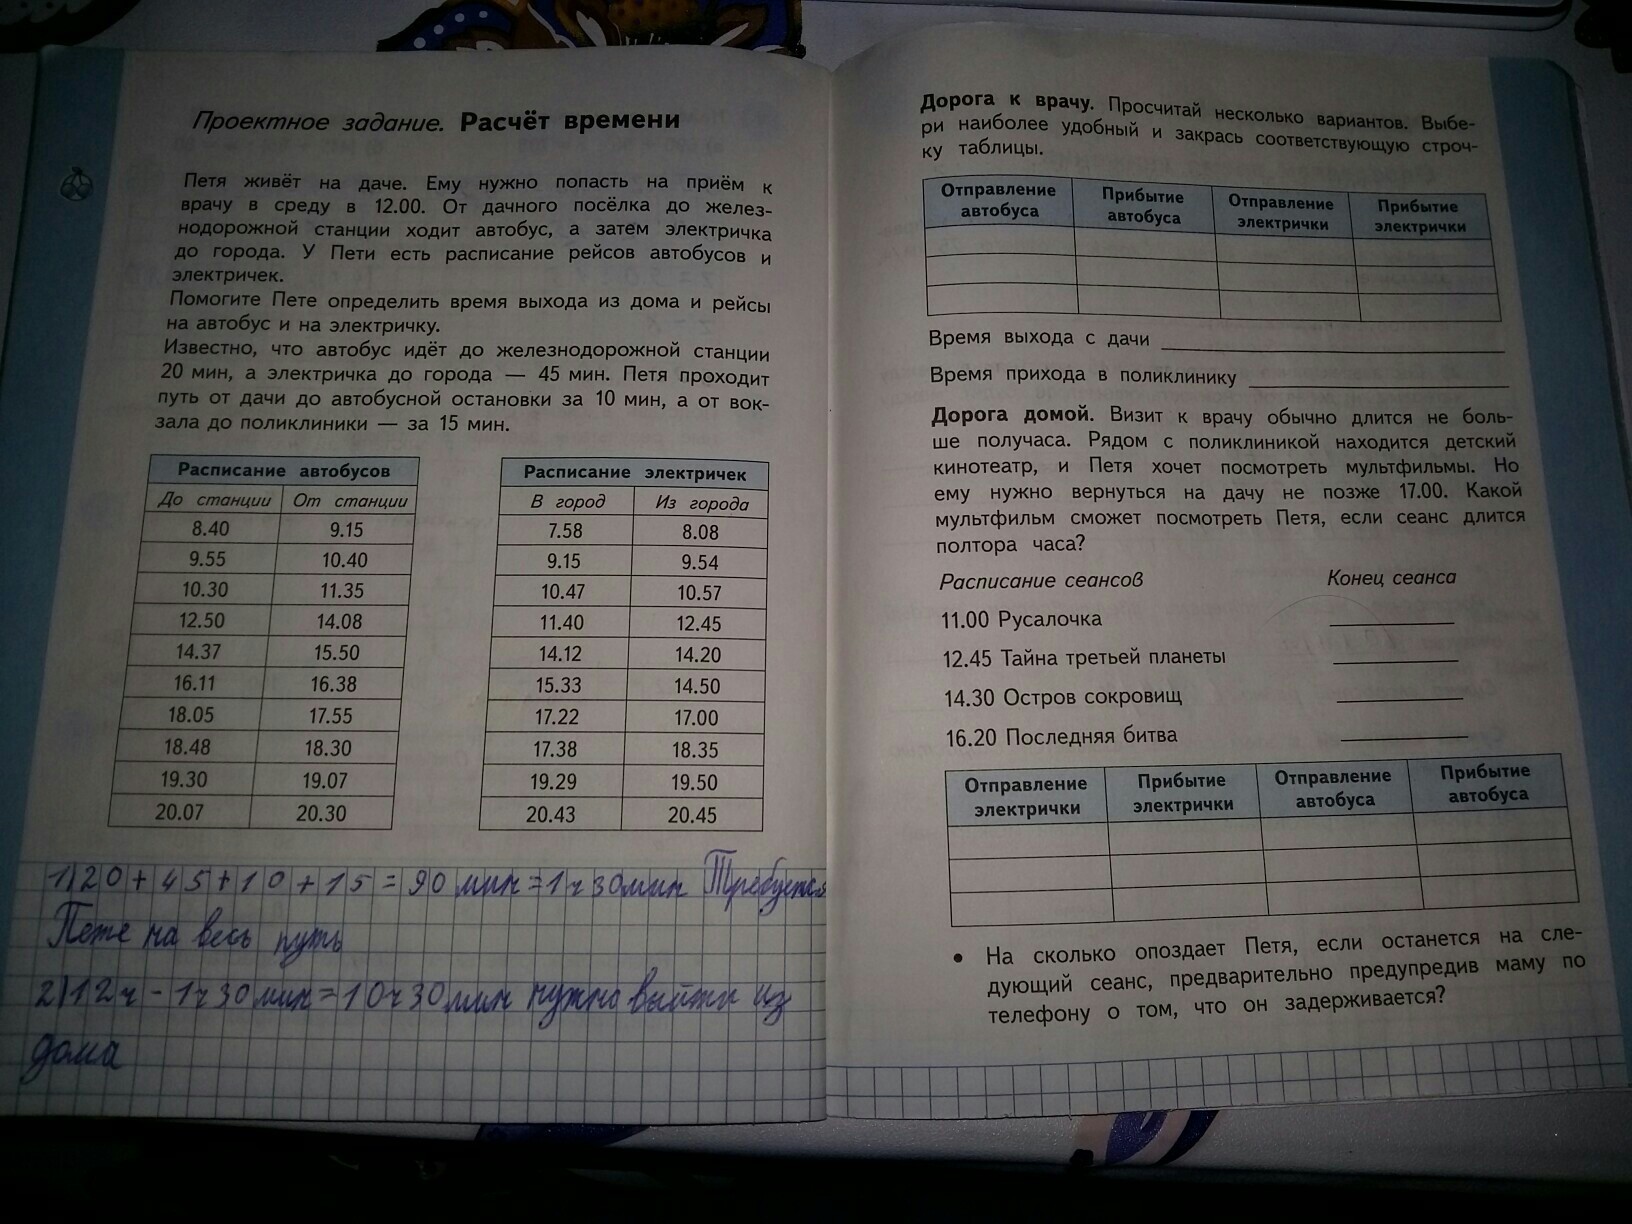 Проектное задание. Расчёт времени
Петя живёт на даче. Ему нужно попасть на приём к
врачу в среду в 12.00. От дачного посёлка до желез-
нодорожной станции ходит автобус, а затем электричка
до города. У Пети есть расписание рейсов автобусов и
электричек.
Помогите Пете определить время выхода из дома и рейсы
на автобус и на электричку.
Известно, что автобус идёт до железнодорожной станции
20 мин, а электричка до города — 45 мин. Петя проходит
путь от дачи до автобусной остановки за 10 мин, а от вок-
зала до поликлиники — за 15 мин.
Расписание автобусов
До станции От станции
8.40 9.15
9.55 10.40
10.30 11.35
12.50 14.08
14.37 15.50
16.11 16.38
18.05 17.55
18.48 18.30
19.30 19.07
20.07 20.30
Расписание электричек
В город Из города
7.58 8.08
9.15 9.54
10.47 10.57
11.40 12.45
14.12 14.20
15.33 14.50
17.22 17.00
17.38 18.35
19.29 19.50
20.43 20.45
1) 20+45+10+15=90 мин=1ч30мин Требуется
Пете на весь путь
2) 12ч-1ч30мин=10ч30мин нужно выйти из
дома
Дорога к врачу. Просчитай несколько вариантов. Выбе-
ри наиболее удобный и закрась соответствующую строч-
ку таблицы.
Отправление автобуса Прибытие автобуса Отправление электрички Прибытие электрички
Время выхода с дачи
Время прихода в поликлинику
Дорога домой. Визит к врачу обычно длится не боль-
ше получаса. Рядом с поликлиникой находится детский
кинотеатр, и Петя хочет посмотреть мультфильмы. Но
ему нужно вернуться на дачу не позже 17.00. Какой
мультфильм сможет посмотреть Петя, если сеанс длится
полтора часа?
Расписание сеансов Конец сеанса
11.00 Русалочка
12.45 Тайна третьей планеты
14.30 Остров сокровищ
16.20 Последняя битва
Отправление электрички Прибытие электрички Отправление автобуса Прибытие автобуса
• На сколько опоздает Петя, если останется на сле-
дующий сеанс, предварительно предупредив маму по
телефону о том, что он задерживается?